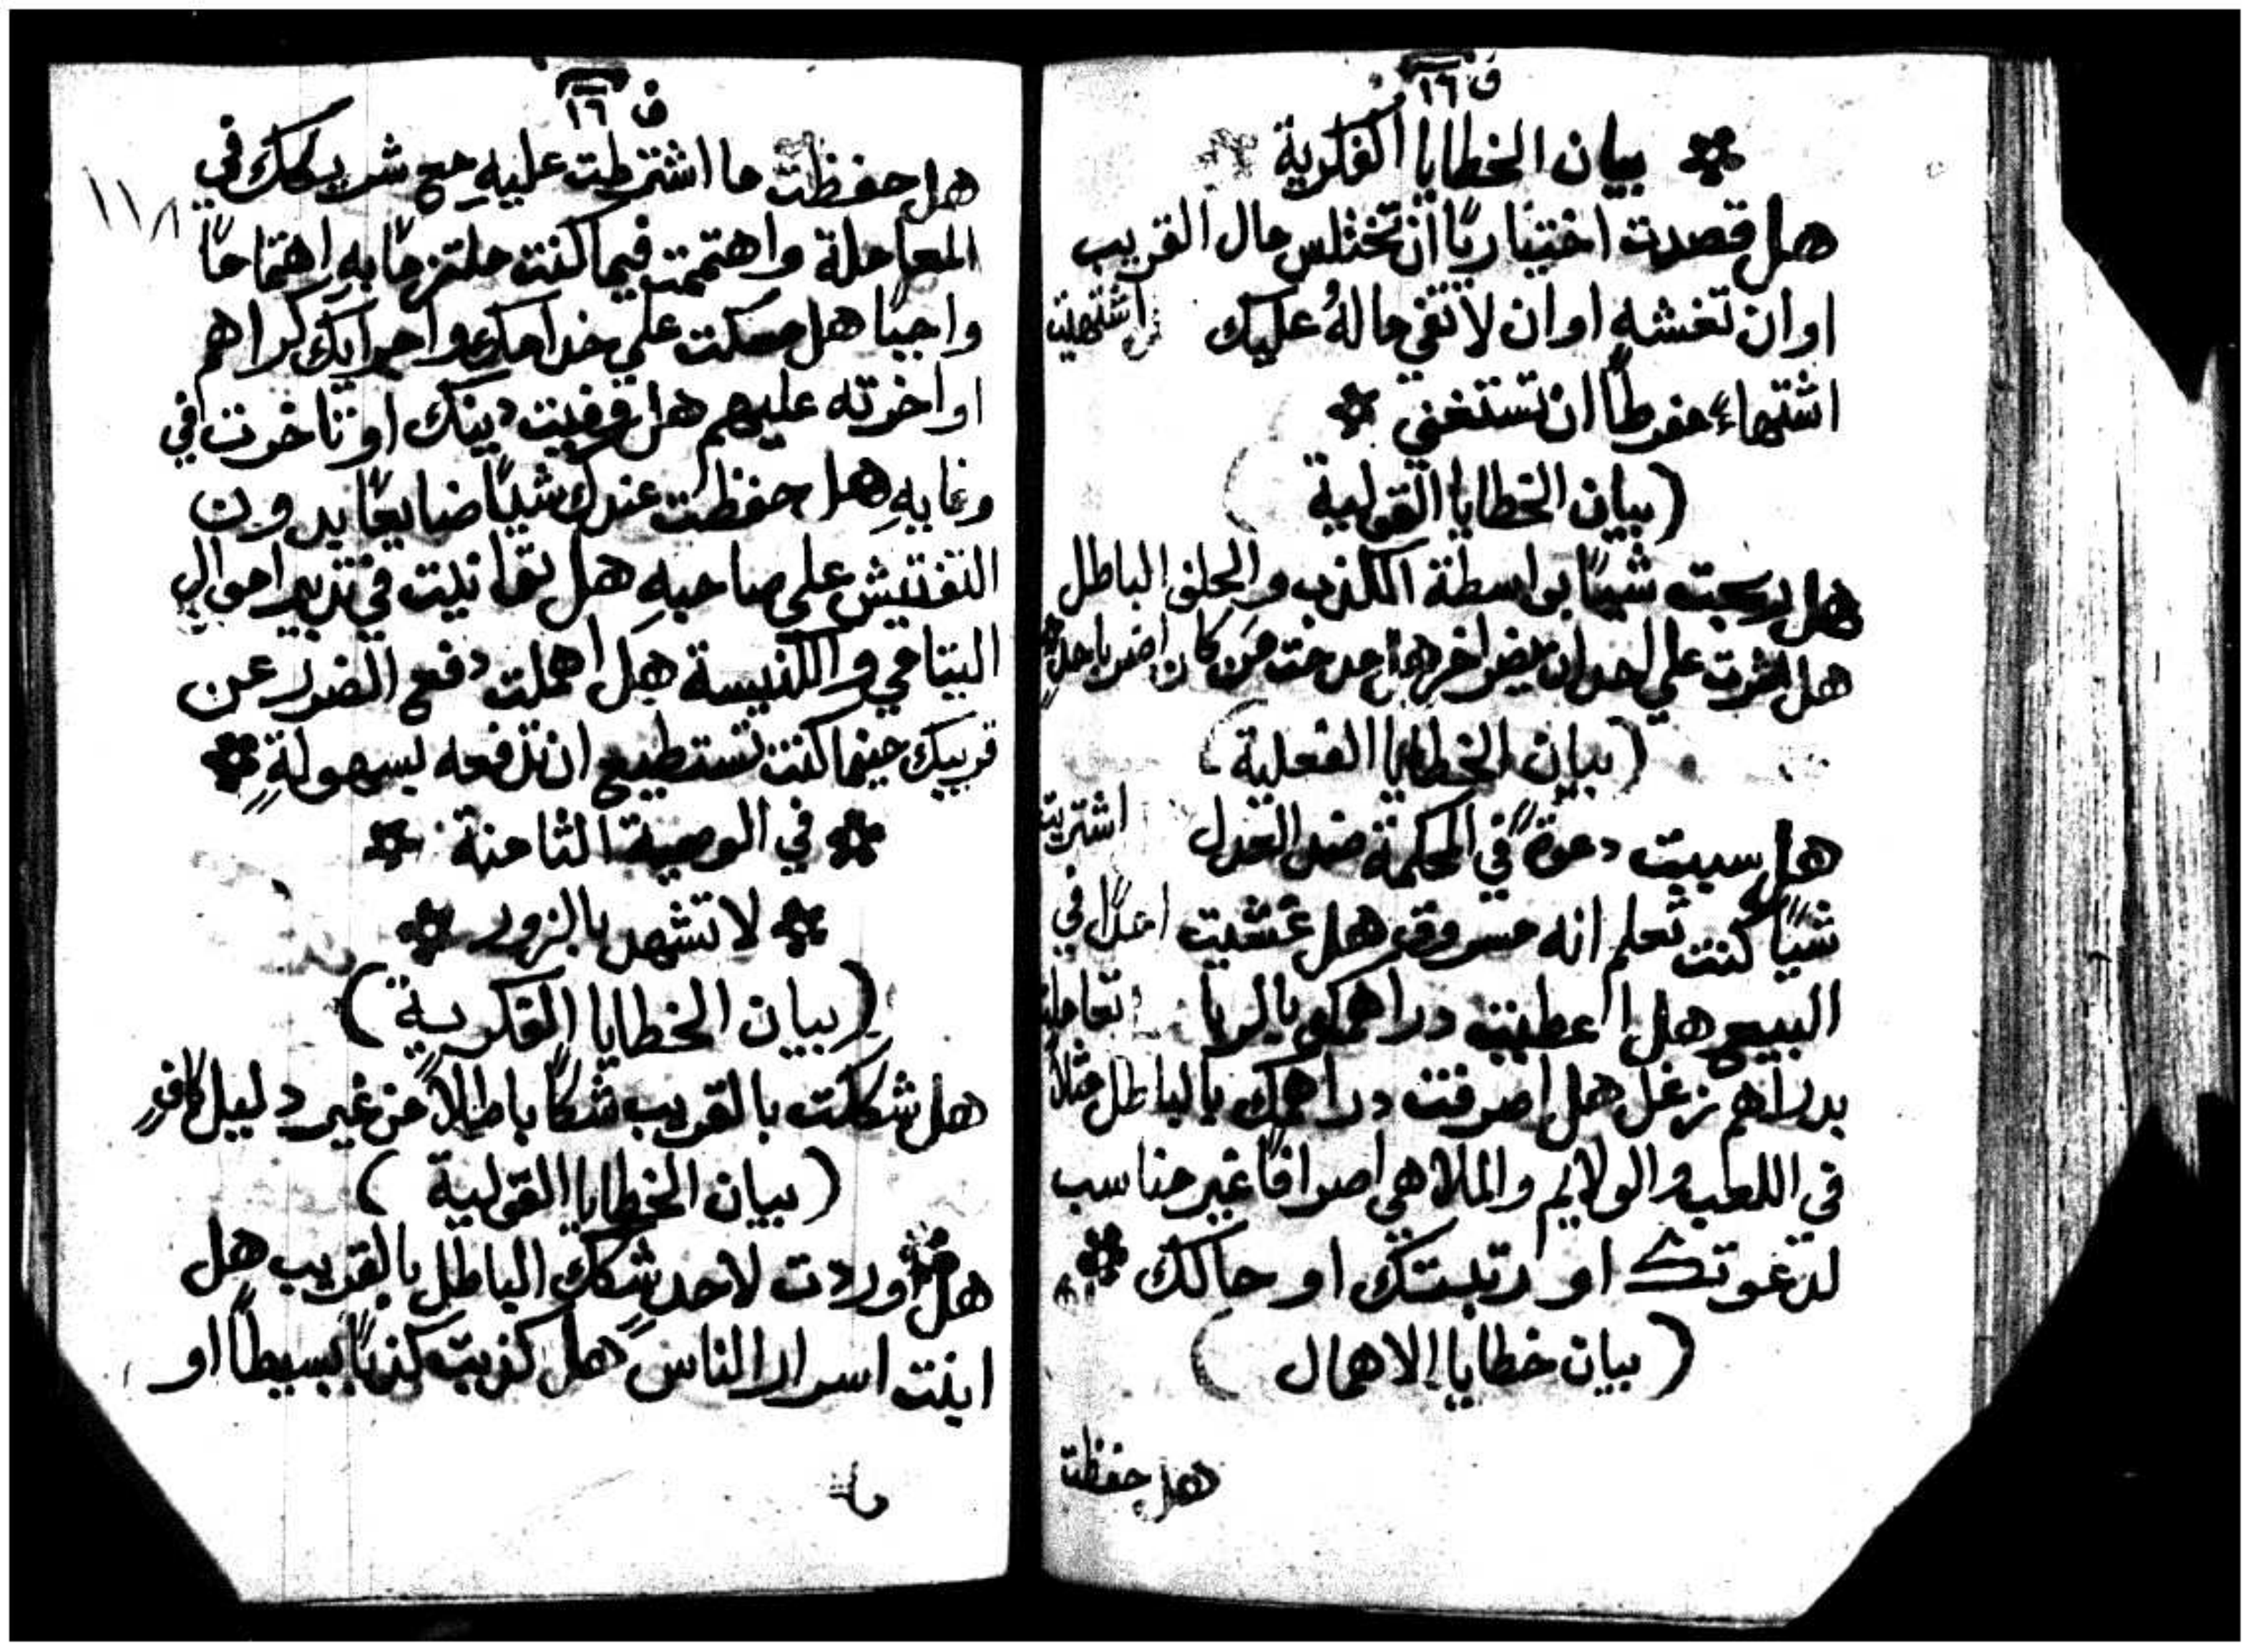 ف ١٦
بيان الخطايا الفكرية
هل قصدت اختياريًا ان تختلس مال القريب
او ان تغشه او ان لا تفي ما لهُ عليك اشتهيت
اشتهاءً مفرطًا ان تستغني
(بيان الخطايا القولية)
هل ربحت شيئًا بواسطة الكذب والحلف الباطل
هل اشرت على احد ان يضر اخر هل مدحت من كان اضر باحدٍ
(بيان الخطايا الفعلية)
هل سببت دعوةً في المحكمة ضد العدل اشتريت
شيًا كنت تعلم انه مسروق هل غشيت احدًا في
البيع هل اعطيت دراهمك بالربا تعاملت
بدراهم زغل هل اصرفت دراهمك بالباطل مثلًا
في اللعب والولايم والملاهي اصرافًا غير مناسب
لدعوتك او رتبتك او حالك
(بيان خطايا الاهمال)
هل حفظت
ف ١٦
١١٨
هل حفظت ما اشترطت عليهِ مع شريكك في
المعاملة واهتممت فيما كنت ملتزمًا بهِ اهتمامًا
واجبًا هل مسكت على خدامك واجرايك كراهم
او اخرته عليهم هل وفيت دينك او تاخرت في
وفايهِ هل حفظت عندك شيًا ضايعًا بدون
التفتيش على صاحبهِ هل توانيت في تدبير اموال
اليتامي والكنيسة هل اهملت دفع الضرر عن
قريبك حينما كنت تستطيع ان تدفعه بسهولةٍ
في الوصية الثامنة
لا تشهد بالزور
(بيان الخطايا الفكرية)
هل شككت بالقريب شكًا باطلًا من غير دليل كافٍ
(بيان الخطايا القولية)
هل اوردت لاحد شكك الباطل بالقريب هل
ابنت اسرار الناس هل كذبت كذبًا بسيطًا او